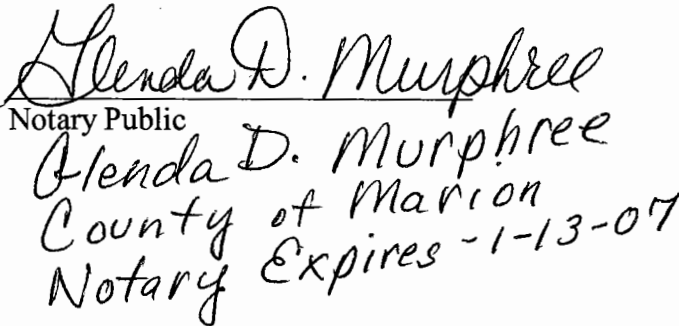 Glenda D. Murphree
Notary Public
Glenda D. Murphree
County of Marion
Notary Expires - 1-13-07